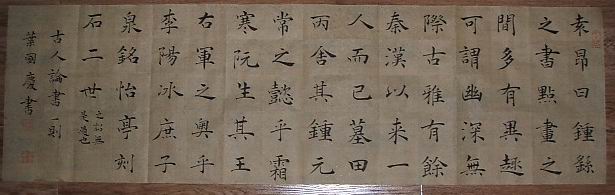 袁昂曰鍾繇
之書點畫之
間多有異趣
可謂幽深無
際古雅有餘
秦漢以來一
人而已墓田
丙舍其鍾元
常之懿乎霜
寒阮生其王
右軍之奧乎
李陽冰庶子
泉銘怡亭刻
石二世
古人論書一則
葉國慶書